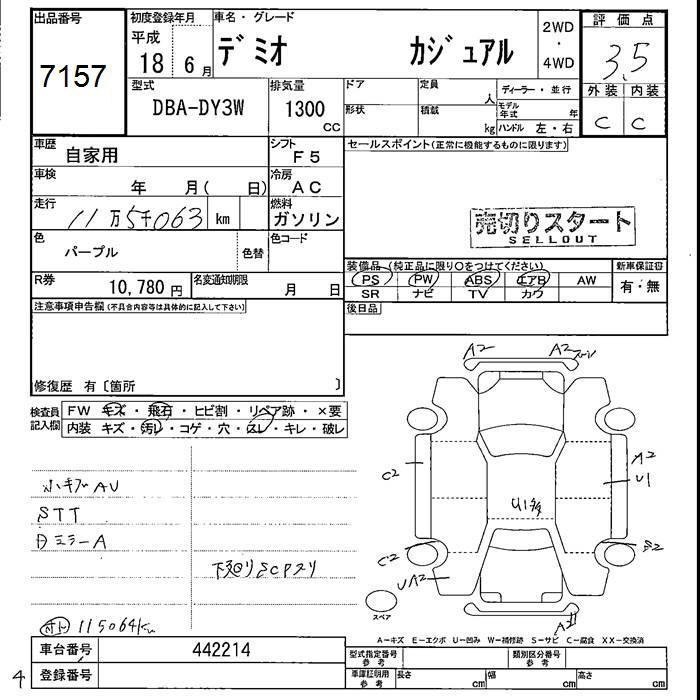 出品番号
7157
初度登録年月
平成
18 6月
車名・グレード
デミオ カジュアル
2WD
・
4WD
評価点
3.5
外装 内装
C C
型式
DBA-DY3W
排気量
1300
CC
ドア
形状
定員
人
積載
kg
ディーラー・並行
モデル年式 年
ハンドル 左・右
車歴
自家用
シフト
F5
車検
年 月( 日)
冷房
AC
走行
11万5千063 km
燃料
ガソリン
色
パープル
色替
色コード
R券
10,780 円
名変通知期限
月 日
セールスポイント(正常に機能するものに限ります)
売切りスタート
SELLOUT
装備品(純正品に限り○をつけてください)
PS PW ABS エアB AW
SR ナビ TV カワ
新車保証書
有・無
後日品
注意事項申告欄(不具合内容等は具体的に記入して下さい)
修復歴 有〔箇所 〕
検査員記入欄
FW キズ・飛石・ヒビ割・リペア跡・×要
内装 キズ・汚れ・コゲ・穴・スレ・キレ・破レ
小キズAU
STT
日ミラーA
下廻りSCPスリ
115064km
A2 A2
C2
A2
U1
U1多
C2
S2
UA2
スペア
A-キズ E-エクボ U-凹み W-補修跡 S-サビ C-腐食 XX-交換済
車台番号
442214
登録番号
4
型式指定番号
参考
類別区分番号
参考
車庫証明用
参考
長さ cm
幅 cm
高さ cm